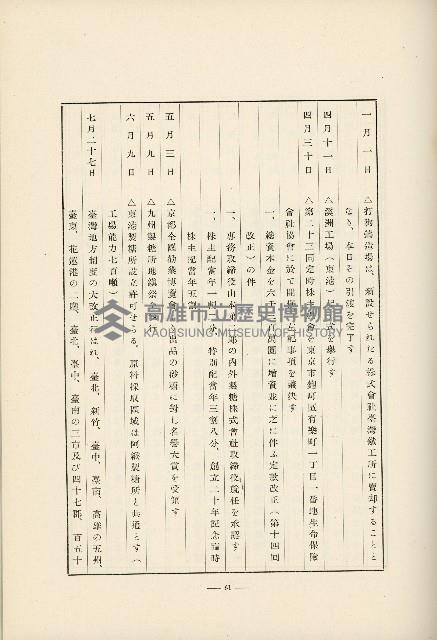 一月一日　△打狗鑄造場は、新設せられたる株式會社臺灣鐵工所に賣却することと
なり、本日その引渡を完了す
四月十一日　△溪洲工場（東港）起工式を舉行す
四月三十日　△第二十三回定時株主總會を東京市麴町區有樂町一丁目一番地生命保險
會社協會に於て開催、左記事項を議決す
一、總資本金を六千三百萬圓に增資並に之に伴ふ定款改正（第十四回
改正）の件
一、專務取締役山本悌二郎の內外製糖株式會社取締役就任を承認す
一、株主配當年一割二分、特別配當年三割八分、創立二十年記念臨時
株主配當年五割
五月三日　△京都全國勸業博覽會へ出品の砂糖に對し名譽大賞を受領す
五月九日　△九州製糖所地鎭祭を執行
六月九日　△東港製糖所設立許可せらる、原料採取區域は阿緱製糖所と共通とす（
工場能力七百噸）
七月二十七日　臺灣地方制度の大改正行はれ、臺北、新竹、臺中、臺南、高雄の五州、
臺東、花蓮港の二廳、臺北、臺中、臺南の三市及び四十七郡、百五十
— 61 —
高雄市立歷史博物館
KAOHSIUNG MUSEUM OF HISTORY